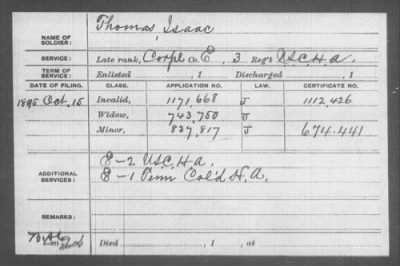 Thomas, Isaac
NAME OF SOLDIER:
SERVICE: Late rank, Corpl Co. E, 3 Reg't U.S.C.H.A.
TERM OF SERVICE: Enlisted , 1 Discharged , 1
DATE OF FILING. CLASS. APPLICATION NO. LAW. CERTIFICATE NO.
1895 Oct. 15 Invalid, 1171,668 J 1112,426
Widow, 743,750 J
Minor, 837,817 J 674.441
ADDITIONAL SERVICES: E-2 U.S.C.H.A.
E-1 Tenn Col'd H.A.
REMARKS:
Died , 1 , at